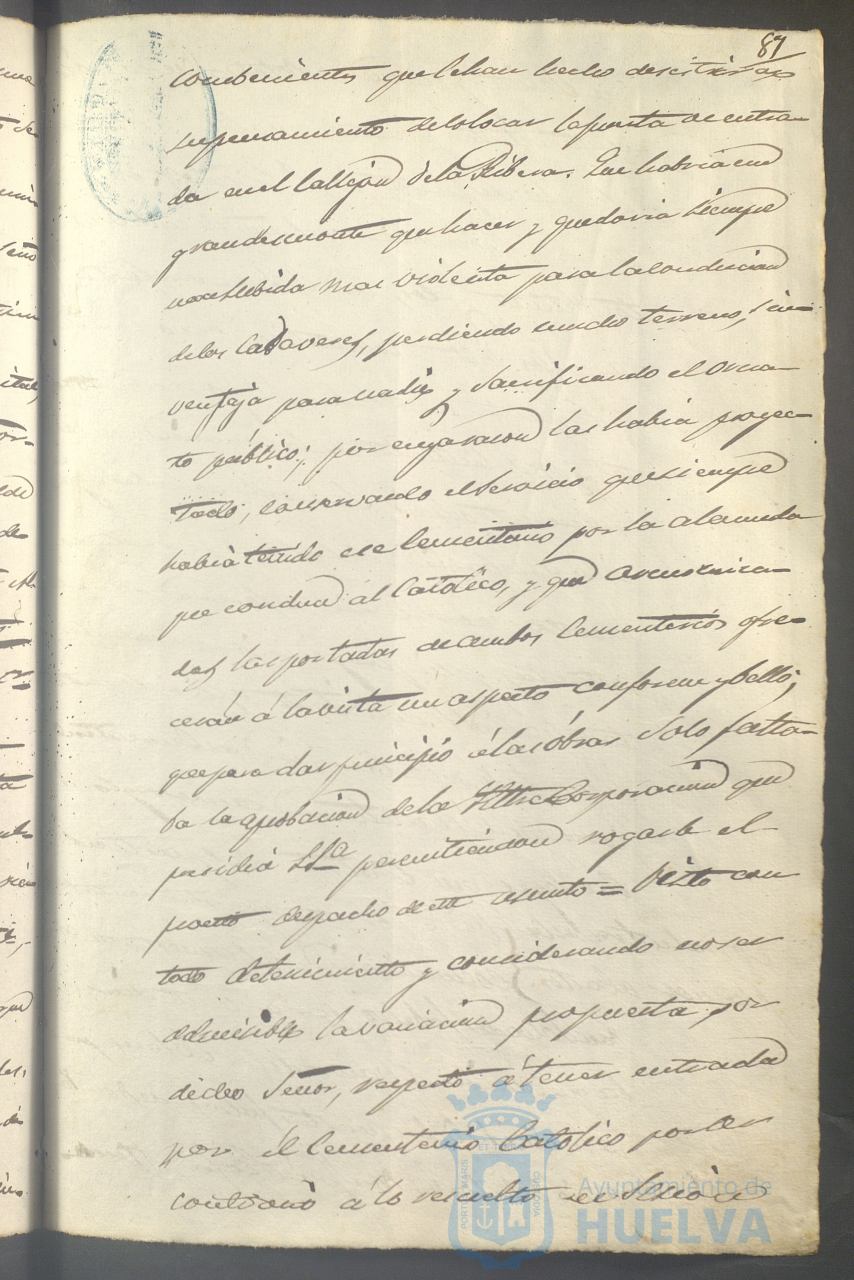 87
combenientes que le han hecho desistir
su pensamiento de colocar la puerta de entra-
da en el callejon de la Ribera. Que habria un
grande monte que hacer y quedaria siempre
una subida mas violenta para la conducion
de los cadaveres, perdiendo mucho terreno, sin
ventaja para nadie y sacrificando el orna-
to público; por cuya razon las habia proyec-
tado, conservando el servicio que siempre
habia tenido ese Cementerio por la alameda
que conduce al Católico, y que
des las portadas de ambos Cementerios ofre-
cerán á la vista un aspecto conforme y bello;
que para dar principio á las óbras solo falta-
ba la aprobacion de la Iltre Corporacion que
presidia SSª permitiendose rogarle el
pronto despacho de este asunto = Visto con
todo detenimiento y considerando no ser
admisible la variacion propuesta por
dicho Señor, respecto á tener entrada
por el Cementerio Catolico por ser
contrario á lo resuelto en
Ayuntamiento de
HUELVA